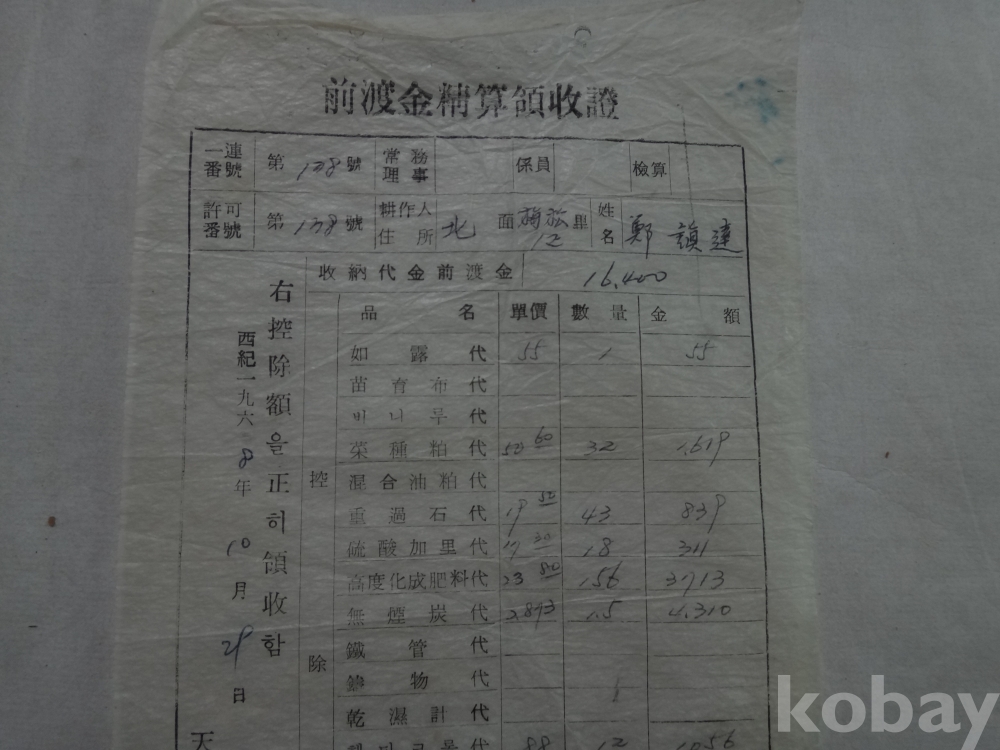 前渡金精算領收證
一連番號 第 138 號 常務理事 係員 檢算
許可番號 第 138 號 耕作人住所 北 面 里 12 姓名 鄭 達
收納代金前渡金 16,400
品名 單價 數量 金額
如露代 55 1 55
苗育布代
비니루代
菜種粕代 50 60 32 1,619
混合油粕代
重過石代 19 50 43 839
硫酸加里代 17 30 18 311
高度化成肥料代 23 80 156 3713
無煙炭代 2,873 1.5 4,310
鐵管代
鑄物代
乾濕計代
88 12 1056
控除
右控除額을正히領收함
西紀一九六8年 10月 29日
天
kobay